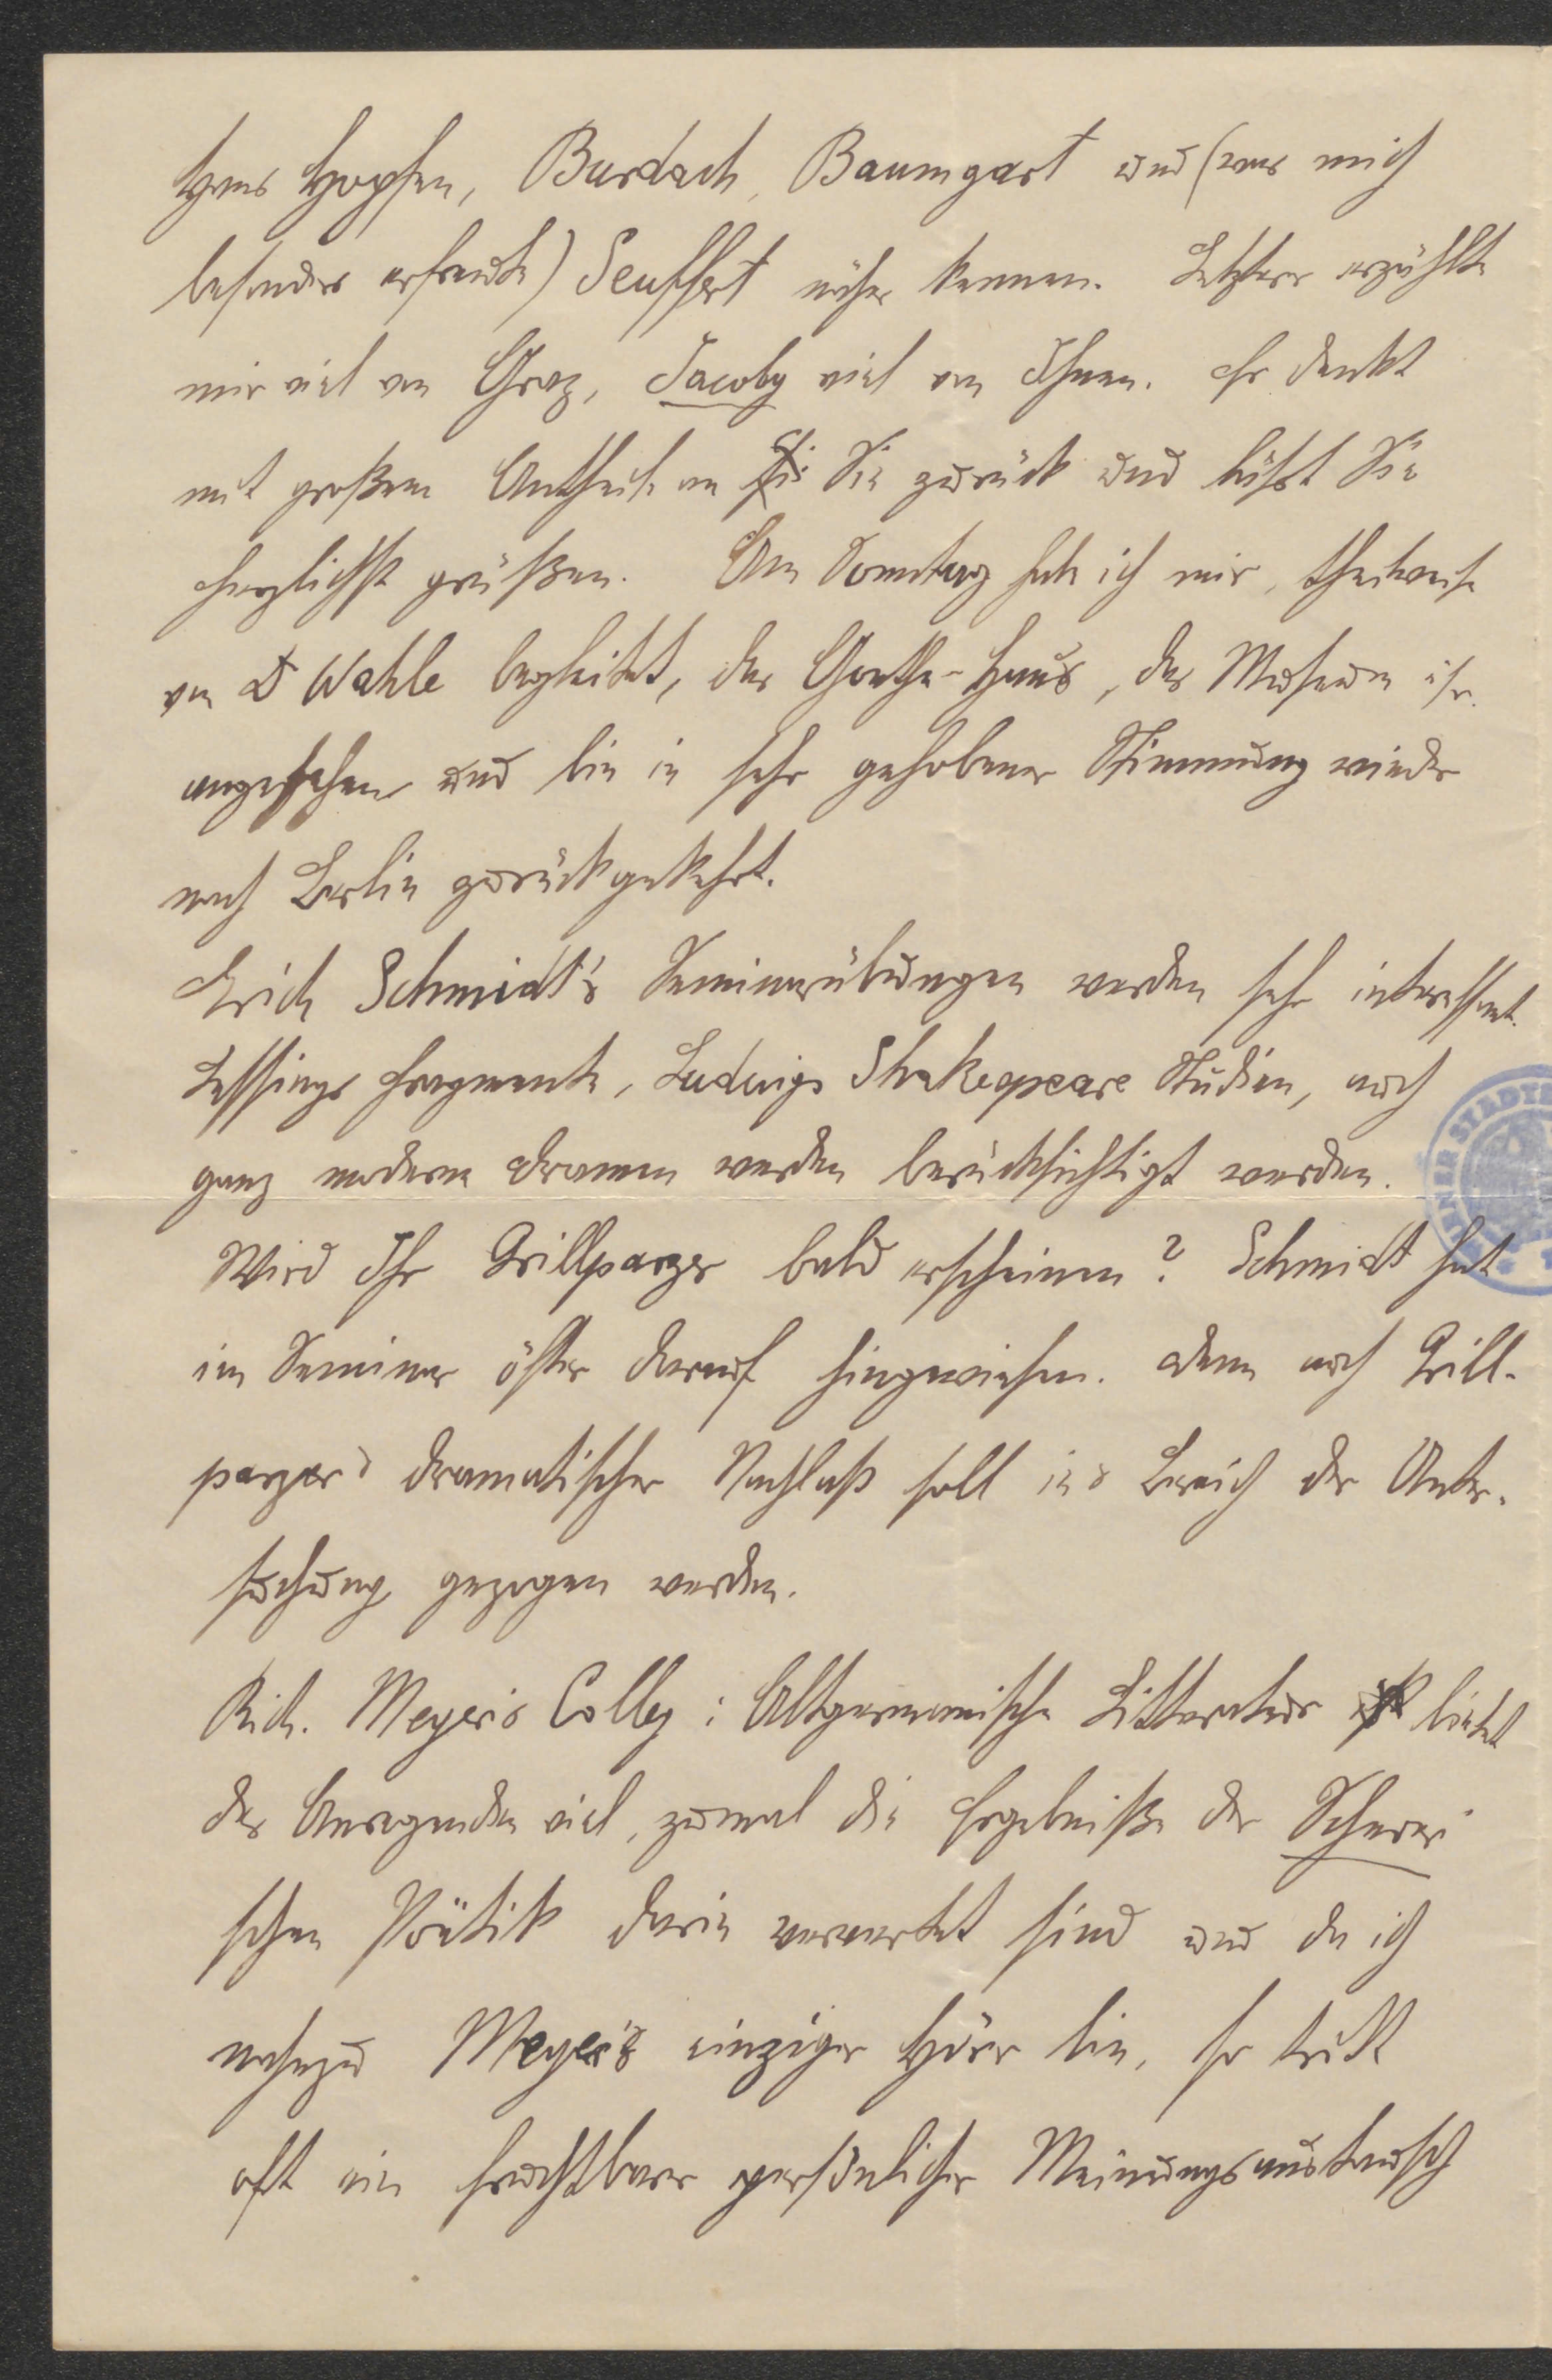 Hans Hopfen, Burdach, Baumgart und (was mich
besonders erfreute) Seuffert näher kennen. Letzterer erzählte
mir viel von Graz, Jacoby viel von Ihnen. Er denkt
mit großem Antheil an Sie zurück und läßt Sie
herzlichst grüßen. Am Sonntag hab ich mir, theilweise
von Dr Wahle begleitet, das Goethe-Haus, das Museum
angesehen und bin in sehr gehobener Stimmung wieder
nach Berlin zurückgekehrt.
Erich Schmidt's Seminarübungen werden sehr interessant.
Lessings Fragmente, Ludwigs Shakespeare Studien, auch
ganz moderne Dramen werden berücksichtigt werden.
Wird Ihr Grillparzer bald erscheinen? Schmidt hat
im Seminar öfter darauf hingewiesen. Denn auch Grill-
parzer's dramatischer Nachlaß soll ins Bereich der Unter-
suchung gezogen werden.
Rich. Meyer's Colleg: Altgermanische Litteratur bietet
des Anregenden viel, zumal die Ergebniße der Scherer'
schen Poëtik darin verwertet sind und da ich
nahezu Meyer's einziger Hörer bin, so tritt
oft ein fruchtbarer persönlicher Meinungsaustausch